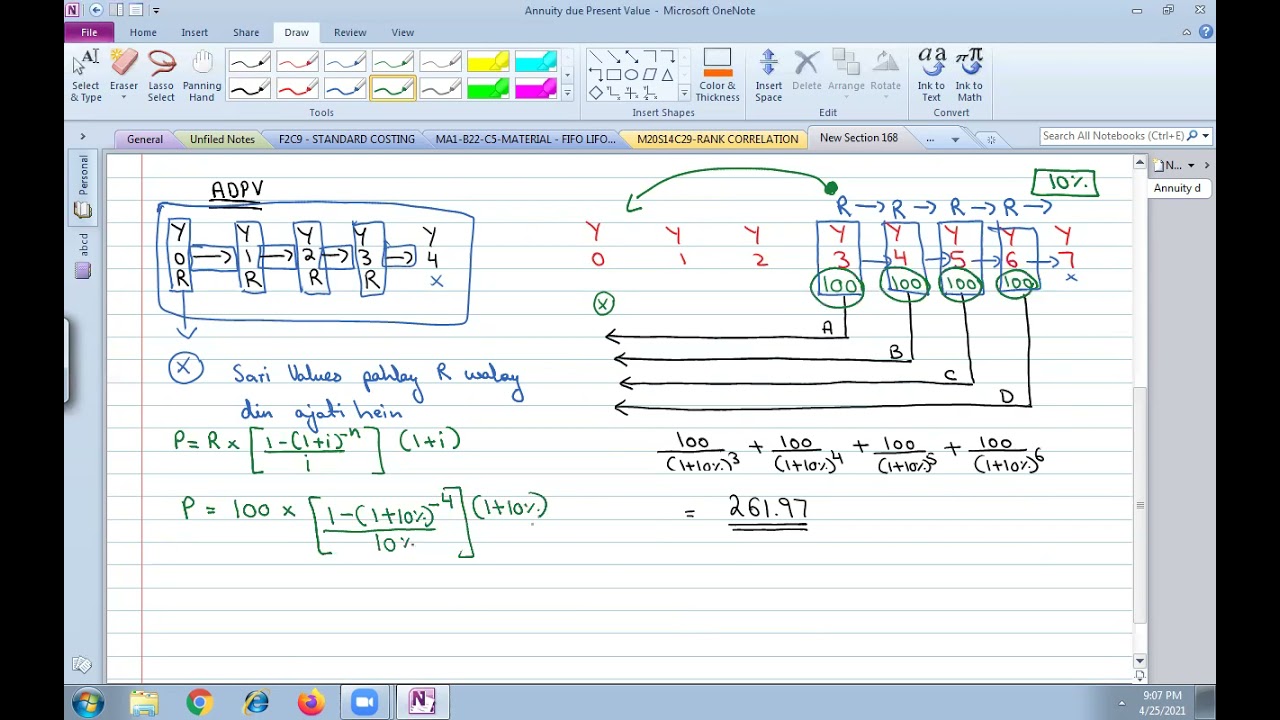 Annuity due Present Value - Microsoft OneNote
File Home Insert Share Draw Review View
Select & Type
Eraser
Lasso Select
Panning Hand
Color & Thickness
Insert Space
Delete
Arrange
Rotate
Ink to Text
Ink to Math
Tools
Insert Shapes
Edit
Convert
General
Unfiled Notes
F2C9 - STANDARD COSTING
MA1-B22-C5-MATERIAL - FIFO LIFO...
M20S14C29-RANK CORRELATION
New Section 168
...
Search All Notebooks (Ctrl+E)
Personal
abcd
N...
Annuity d
ADPV
Y Y Y Y Y
0 → 1 → 2 → 3 → 4
R R R R x
X
Sari Values pahlay R walay
din ajati hein
P = R × [1-(1+i)^-n / i] (1+i)
P = 100 × [1-(1+10%)^-4 / 10%] (1+10%)
10%
R → R → R → R →
Y Y Y Y Y Y Y Y
0 1 2 3 → 4 → 5 → 6 → 7
100 100 100 100 x
X
A
B
C
D
100/(1+10%)^3 + 100/(1+10%)^4 + 100/(1+10%)^5 + 100/(1+10%)^6
= 261.97
9:07 PM
4/25/2021